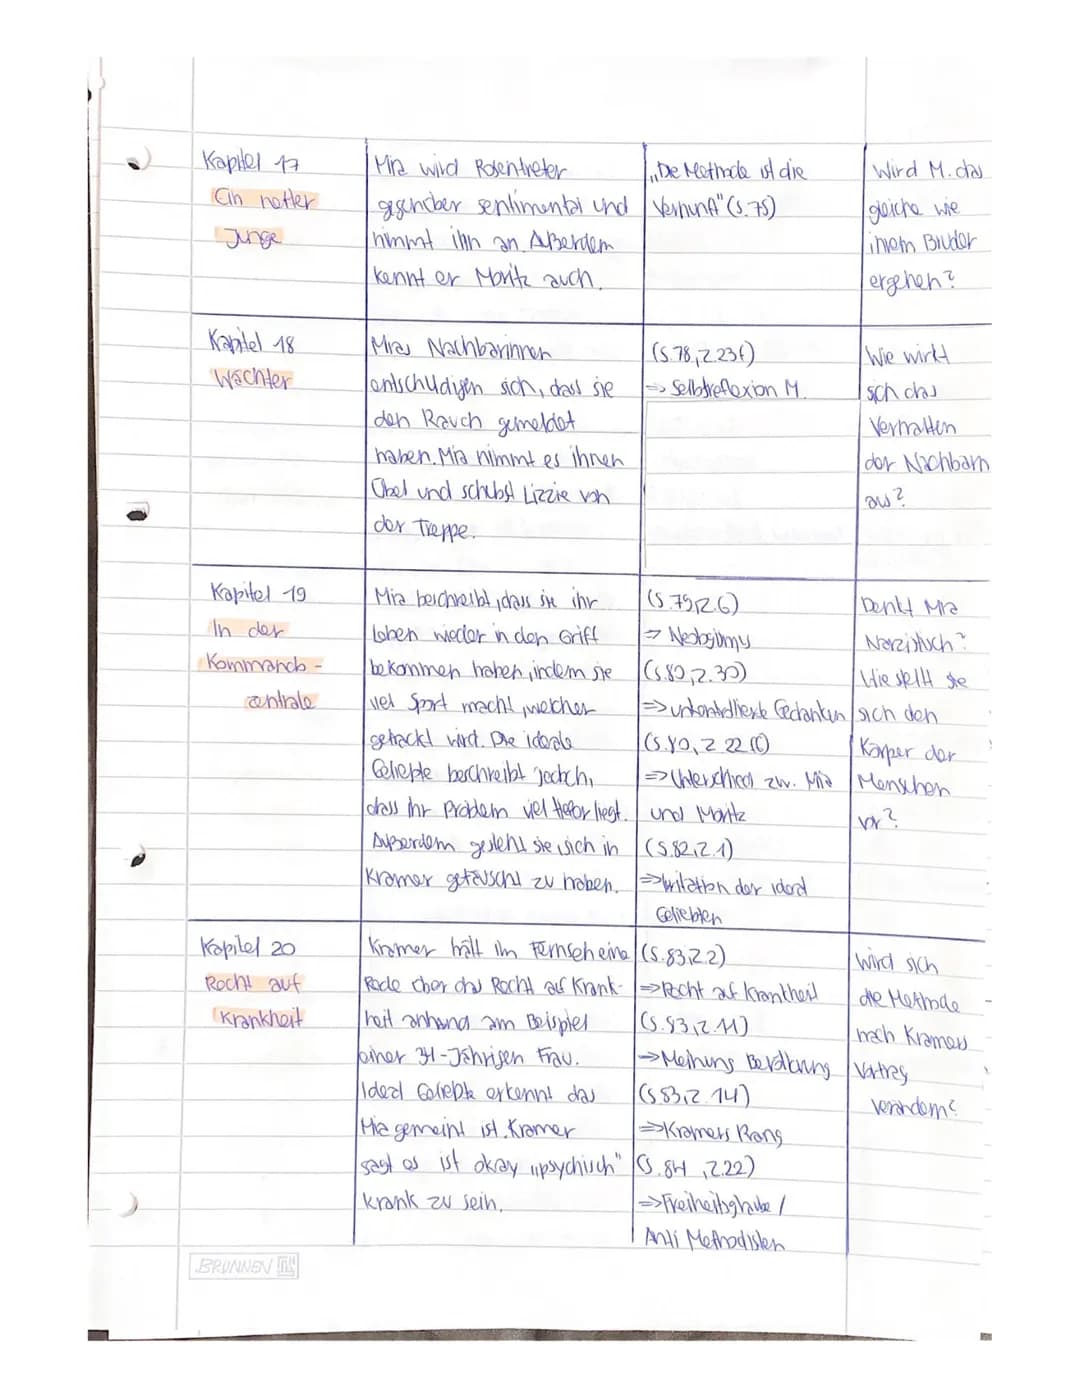 Kapitel 17
Ein netter
Junge
Mia wird Rosentreter
gegenüber sentimental und
nimmt ihn an. Außerdem
kennt er Moritz auch.
„Die Methode ist die
Vernunft" (S.75)
Wird M. das
gleiche wie
ihrem Bruder
ergehen?
Kapitel 18
Wächter
Mias Nachbarinnen
entschuldigen sich, dass sie
den Rauch gemeldet
haben. Mia nimmt es ihnen
Übel und schubst Lizzie von
der Treppe.
(S.78, Z.23f)
=> Selbstreflexion M.
Wie wirkt
sich das
Verhalten
der Nachbarn
aus?
Kapitel 19
In der
Kommando-
zentrale
Mia beschreibt, dass sie ihr
Leben wieder in den Griff
bekommen haben, indem sie
viel Sport macht, welcher
getrackt wird. Die ideale
Geliebte beschreibt jedoch,
dass ihr Problem viel tiefer liegt.
Außerdem gesteht sie, sich in
Kramer getäuscht zu haben.
(S.79, Z.6)
=>
(S.80, Z.30)
=> unkontrollierte Gedanken
(S.80, Z 22 ff)
=> Unterschied zw. Mia
und Moritz
(S.82, Z.1)
=> Irritation der ideal
Geliebten
Denkt Mia
Narzistisch?
Wie stellt sie
sich den
Körper der
Menschen
vor?
Kapitel 20
Recht auf
Krankheit
Kramer hält im Fernseh eine
Rede über das Recht auf Krank-
heit anhand am Beispiel
einer 34-Jährigen Frau.
Ideal Geliebte erkennt das
Mia gemeint ist. Kramer
sagt es ist okay „psychisch"
krank zu sein.
(S.83, Z.2)
=> Recht auf Krankheit
(S.83, Z.11)
=> Meinung Bevölkrung
(S.83, Z.14)
=> Kramers Rang
(S.84, Z.22)
=> Freiheitsglaube /
Anti Methodisten
Wird sich
die Methode
nach Kramers
Vortrag
verändern?
BRUNNEN